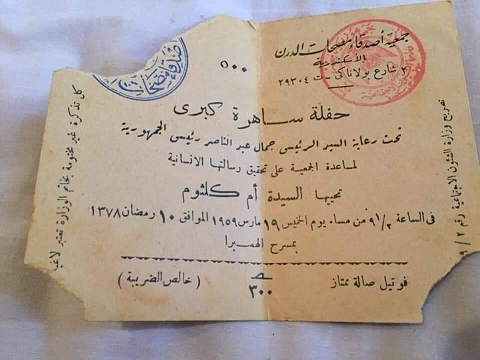 جمعية أصدقاء مصحات الدرن
الاسكندرية
٢ شارع بولاناكي ت ٢٩٣٠٤
٥٠٠
حفلة ساهرة كبرى
تحت رعاية السيد الرئيس جمال عبد الناصر رئيس الجمهورية
لمساعدة الجمعية على تحقيق رسالتها الانسانية
تحييها السيدة أم كلثوم
فى الساعة ٩١/٢ من مساء يوم الخميس ١٩ مارس ١٩٥٩ الموافق ١٠ رمضان ١٣٧٨
بمسرح الهمبرا
فوتيل صالة ممتاز
٣٠٠
(خالص الضريبة)
كل تذكرة غير مختومة بخاتم الوزارة تعتبر لاغية
تصريح وزارة الشئون الاجتماعية رقم